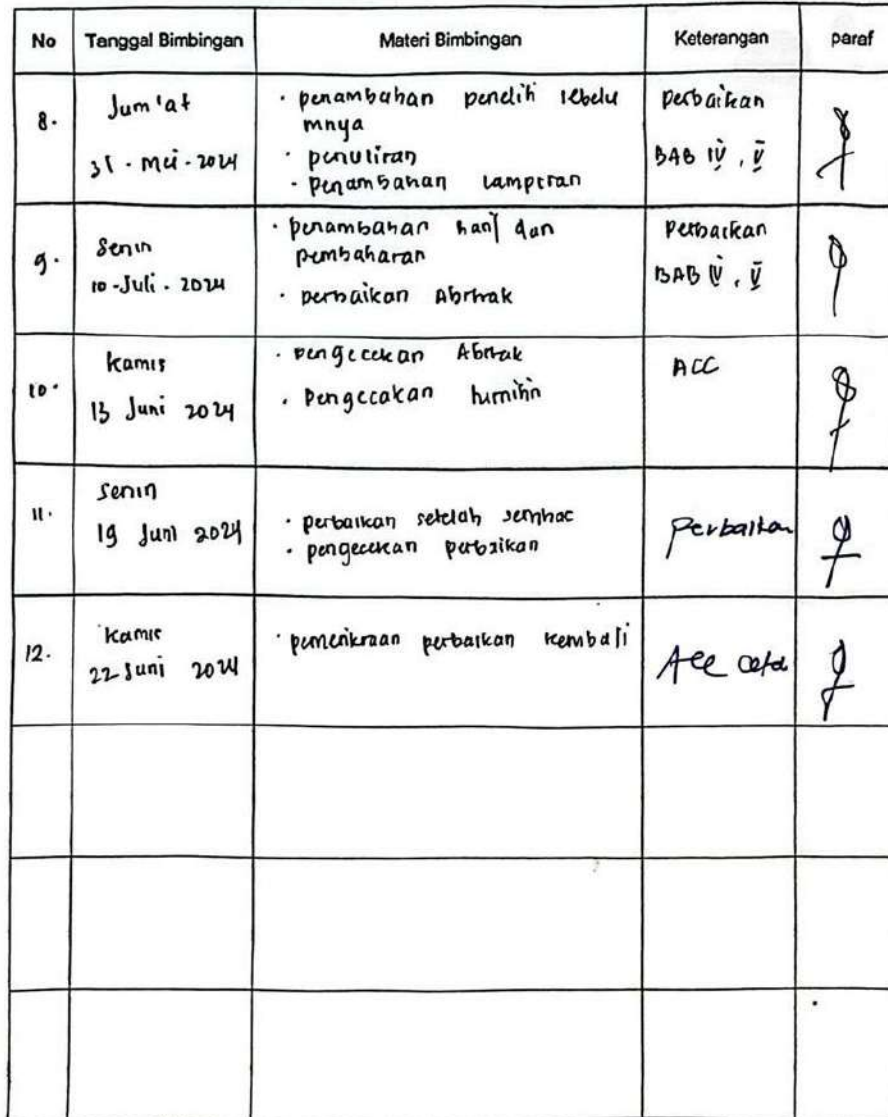 No Tanggal Bimbingan Materi Bimbingan Keterangan paraf
8. Jum'at
31 - Mei - 2024
• penambahan peneliti sebelu
mnya
• penulisan
• penambahan lampiran
perbaikan
BAB IV, V
9. Senin
10 - Juli - 2024
• penambahan hasil dan
pembahasan
• perbaikan Abstrak
Perbaikan
BAB IV, V
10. Kamis
13 Juni 2024
• pengecekan Abstrak
• Pengecakan
ACC
11. Senin
19 Juni 2024
• perbaikan setelah semhas
• pengecekan perbaikan
Perbaikan
12. Kamis
22 Juni 2024
• pemeriksaan perbaikan kembali
Acc